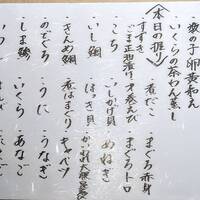 数の子 卵黄和え
いくらの茶わん蒸し
〈本日の握り〉
すずき
こち
いし鯛
きんめ鯛
のどぐろ
しま鯵
ごま正油漬け
才巻えび
いしかげ貝
ほっき貝
煮はまぐり
うに
いくら
煮だこ
めねぎ
キャベツ
うなぎ
あなご
まぐろ赤身
まぐろトロ